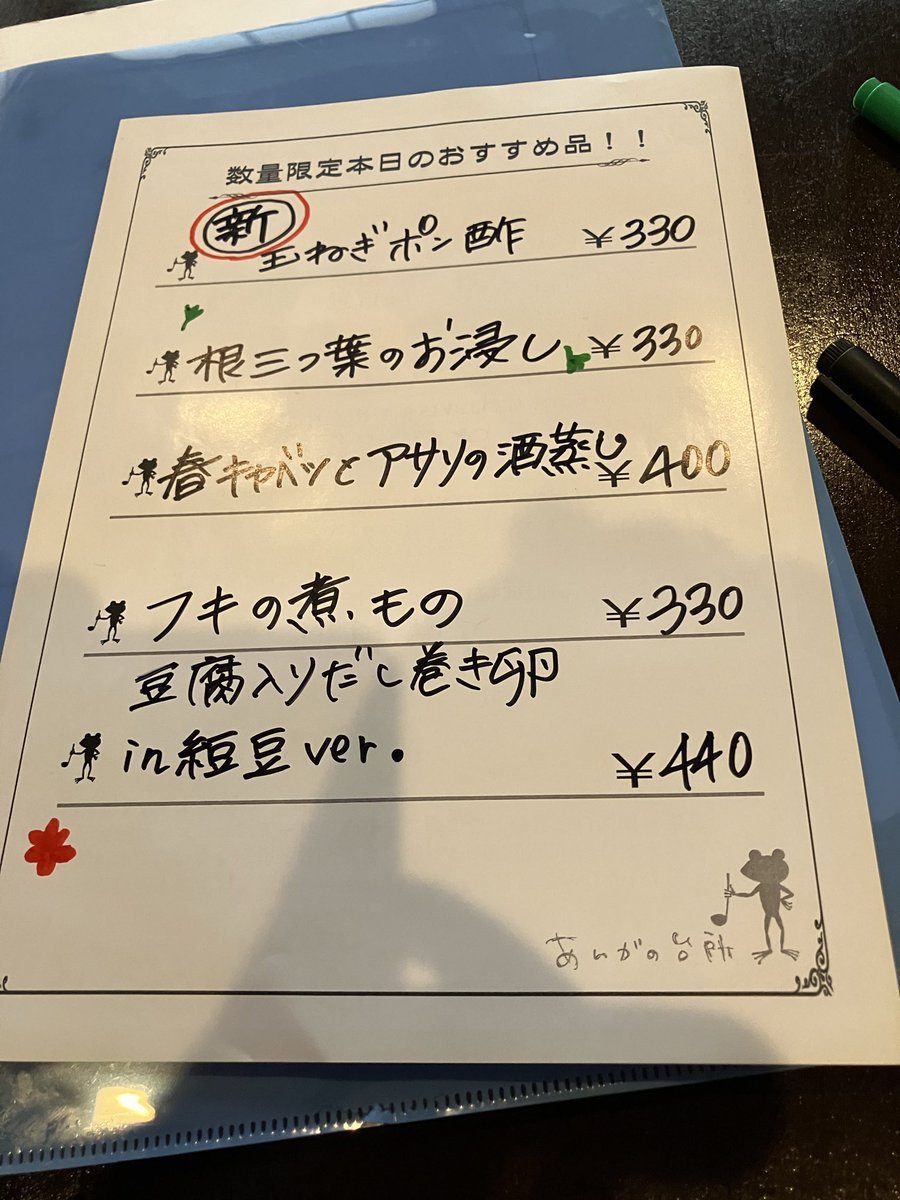 数量限定本日のおすすめ品！！
新玉ねぎポン酢 ¥330
根三つ葉のお浸し ¥330
春キャベツとアサリの酒蒸し ¥400
フキの煮もの ¥330
豆腐入りだし巻き卵
in納豆ver. ¥440
あいがの台所